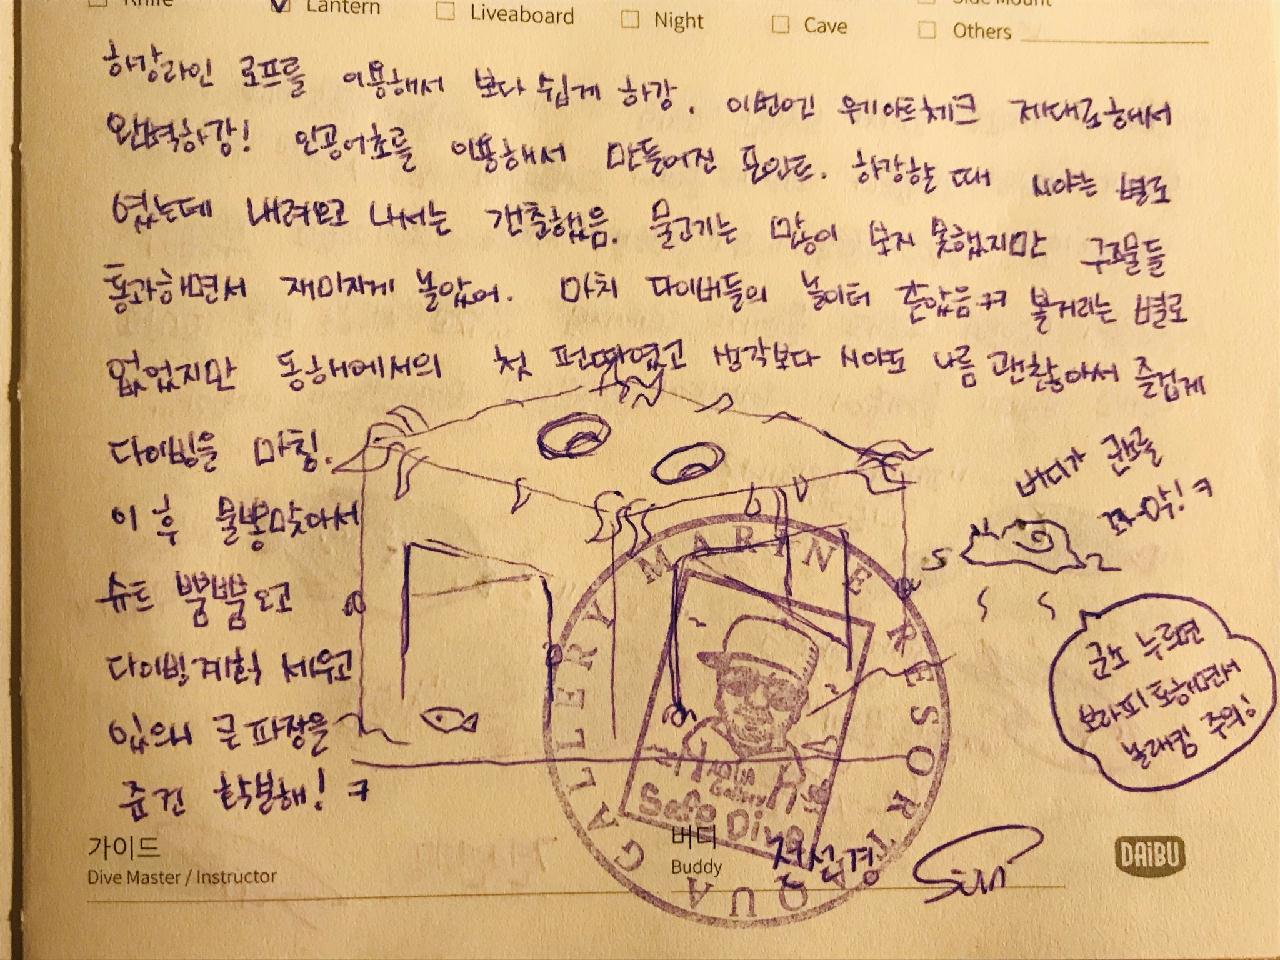 Knife
Lantern
Liveaboard
Night
Cave
Side Mount
Others
하강라인 로프를 이용해서 보다 쉽게 하강. 이번엔 웨이트체크 제대로해서
완벽하강! 인공어초를 이용해서 만들어진 포인트. 하강할 때 시야는 별로
였는데 내려오고 나서는 갠츈했음. 물고기는 많이 보지 못했지만 구조물들
통과하면서 재미지게 놀았어. 마치 다이버들의 놀이터 같았음ㅋㅋ 볼거리는 별로
없었지만 동해에서의 첫 펀다였고 생각보다 시야도 나름 괜찮아서 즐겁게
다이빙을 마침.
이 후 물뽕맞아서
슈트 뿜뿜오고
다이빙계획 세우고
있으니 큰 파장을
준건 확분해! ㅋ
버디가 군소를
꺄-악! ㅋ
군소 누르면
보라피 토하면서
놀래킴 주의!
AQUA GALLERY MARINE RESORT
AQUA
Gallery
Safe Dive
가이드
Dive Master / Instructor
버디
Buddy
전선경
Sun
DAIBU